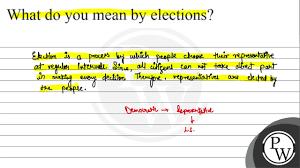 What do you mean by elections?
Election is a process by which people choose their representative
at regular intervals. Since, all citizens can not take direct part
in making every decision. Therefore, representatives are elected by
the people.
Democratic → Representative
↓
PW